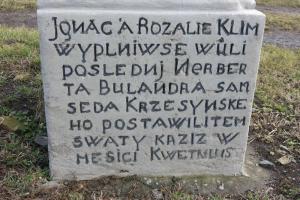 JGNAC A ROZALIE KLIM
WYPLNIWSE WULI
POSLEDNJ HERBER
TA BULANDRA SAM
SEDA KRZESYNSKE
HO POSTAWILITEM
SWATY KRZIZ W
MESICI KWETNUIS